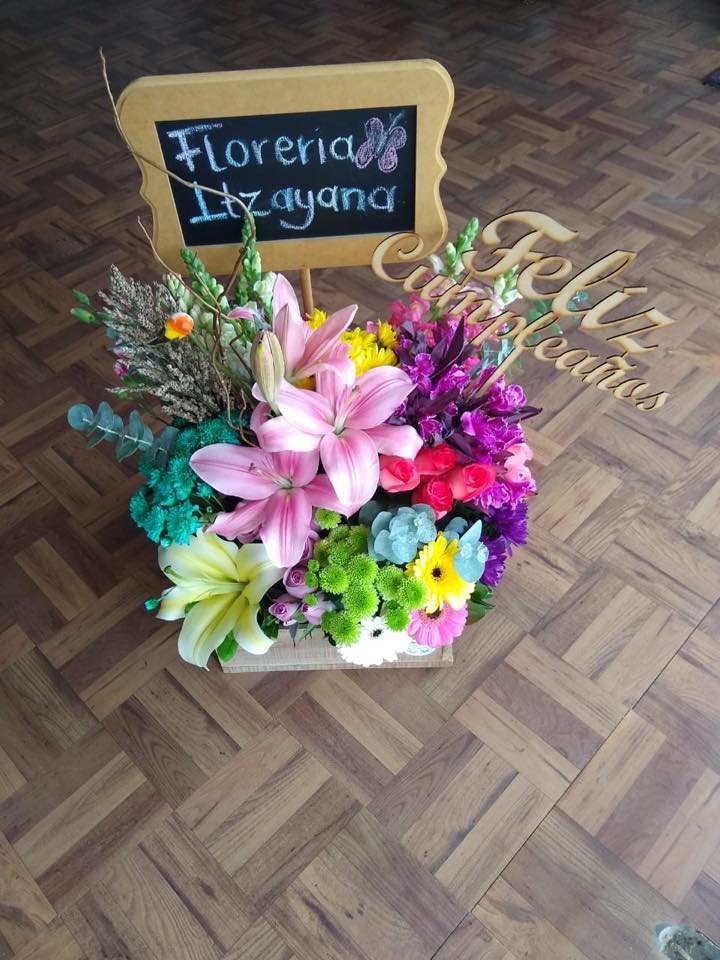 Florería
Itzayana
Feliz
Cumpleaños